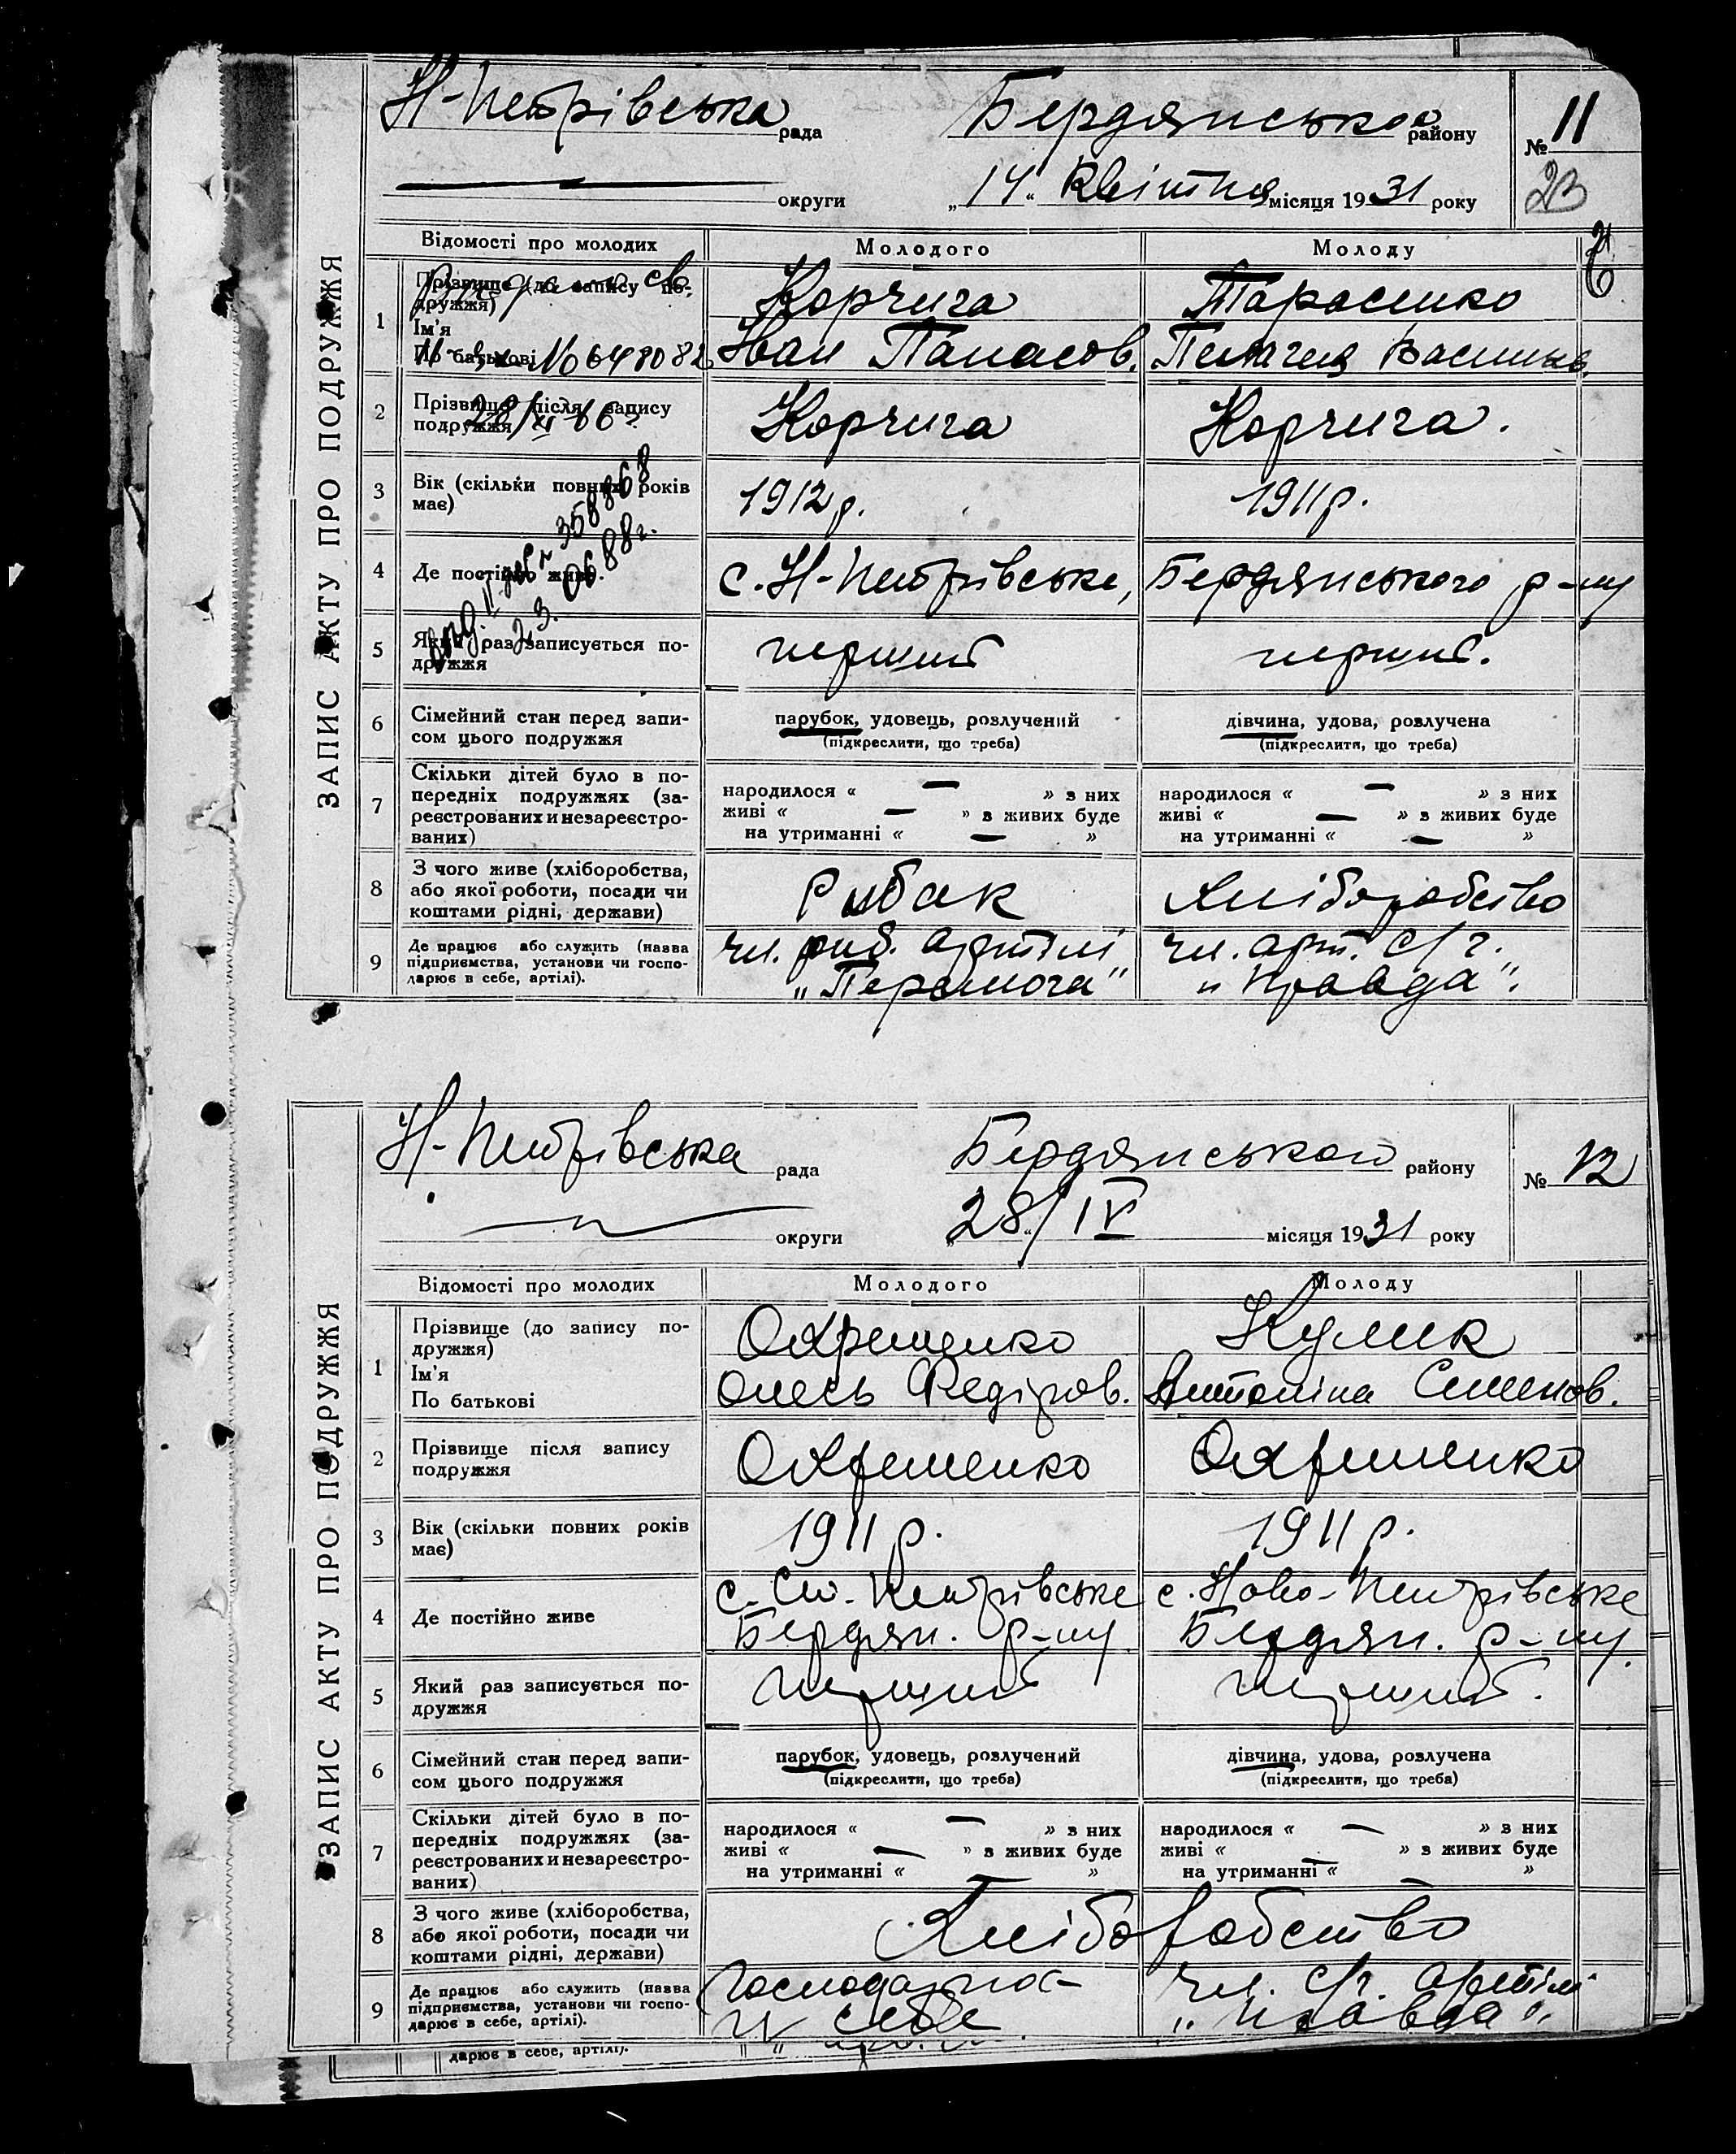 Н-Петрівська рада Бердянського району № 11
округи „14“ Квітня місяця 1931 року
23
ЗАПИС АКТУ ПРО ПОДРУЖЖЯ
Відомості про молодих Молодого Молоду
1 Прізвище (до запису подружжя) Корчига Тарасенко
Ім'я
По батькові Іван Панасов. Пелагея Васильов.
№ 648082
2 Прізвище після запису Корчига Корчига.
подружжя
3 Вік (скільки повних років 1912 р. 1911 р.
має)
358868
4 Де постійно живе. с. Н-Петрівське, Бердянського р-ну
5 Який раз записується по- перший перший.
дружжя
6 Сімейний стан перед запи- парубок, удовець, розлучений дівчина, удова, розлучена
сом цього подружжя (підкреслити, що треба) (підкреслити, що треба)
7 Скільки дітей було в по- народилося « — » з них народилося « — » з них
передніх подружжях (за- живі « — » з живих буде живі « — » з живих буде
реєстрованих и незареєстро- на утриманні « — » на утриманні « — »
ваних)
8 З чого живе (хліборобства, Рибак Хліборобство
або якої роботи, посади чи
коштами рідні, держави)
9 Де працює або служить (назва чл. риб. артілі чл. арт. с/г.
підприємства, установи чи госпо- „Перемога“ „Правда“.
дарює в себе, артілі).
Н-Петрівська рада Бердянського району № 12
округи „28“/IV місяця 1931 року
ЗАПИС АКТУ ПРО ПОДРУЖЖЯ
Відомості про молодих Молодого Молоду
1 Прізвище (до запису по- Охрешенко Кулик
дружжя)
Ім'я Олесь Федіров. Антоніна Семенов.
По батькові
2 Прізвище після запису Охрешенко Охрешенко
подружжя
3 Вік (скільки повних років 1911 р. 1911 р.
має)
4 Де постійно живе с. Петрівське с. Ново-Петрівське
Бердян. р-ну Бердян. р-ну.
5 Який раз записується по- перший перший.
дружжя
6 Сімейний стан перед запи- парубок, удовець, розлучений дівчина, удова, розлучена
сом цього подружжя (підкреслити, що треба) (підкреслити, що треба)
7 Скільки дітей було в по- народилося « — » з них народилося « — » з них
передніх подружжях (за- живі « — » з живих буде живі « » з живих буде
реєстрованих и незареєстро- на утриманні « » на утриманні « — »
ваних)
8 З чого живе (хліборобства, Хліборобство
або якої роботи, посади чи
коштами рідні, держави)
9 Де працює або служить (назва чл. с/г. артілі
підприємства, установи чи госпо- у себе „Правда“.
дарює в себе, артілі).
дарює в себе, артілі).